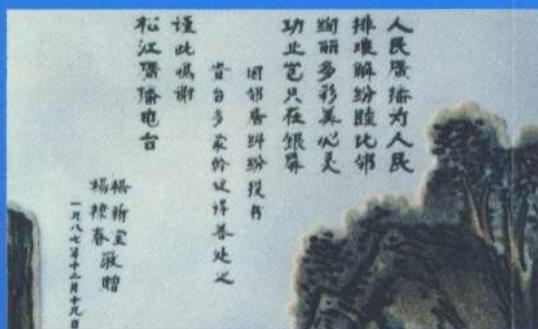 人民广播为人民
排难解纷睦比邻
绚丽多彩美心灵
功止岂只在银屏
因邻居纠纷投书
贵台多蒙
得善处之
谨此鸣谢
松江广播电台
杨
敬赠
一九八七年十二月十九日